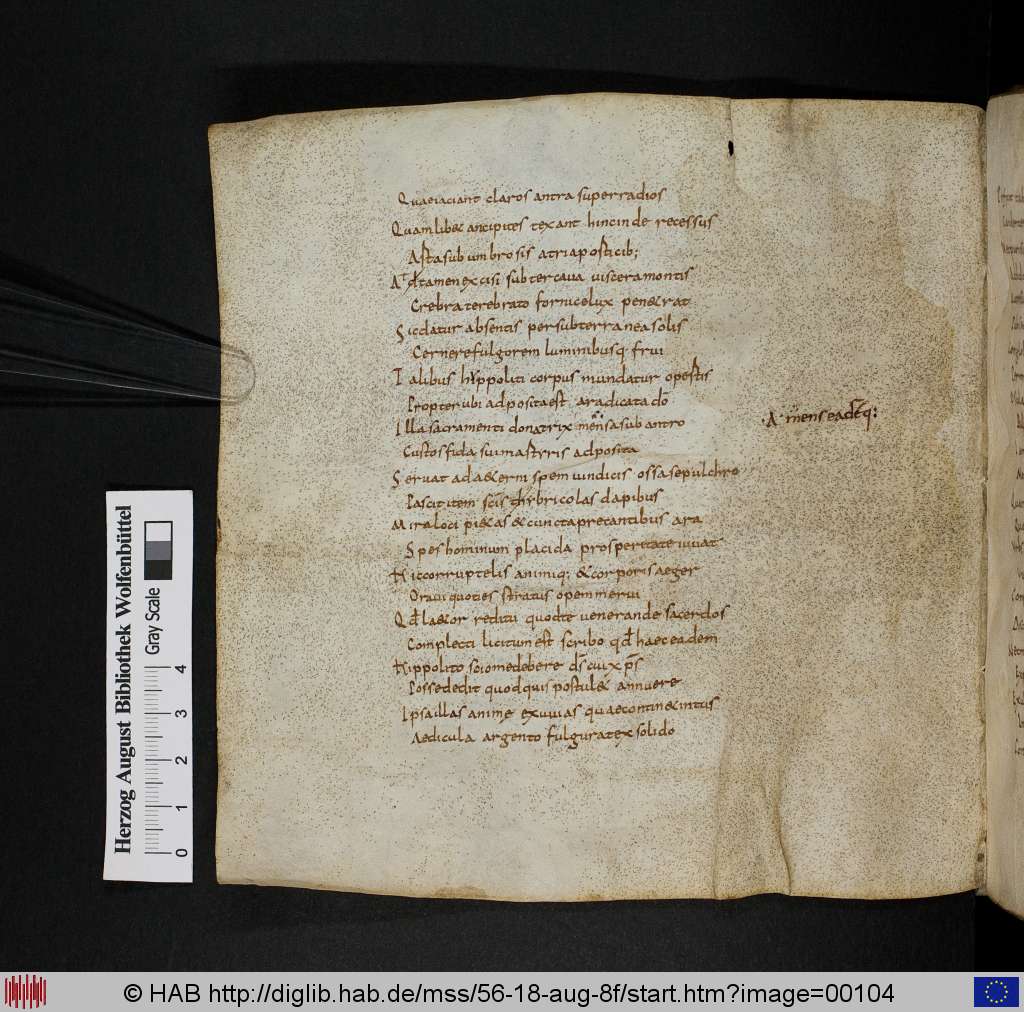 Quaeiaciant claros antra superradios
Quamlib& ancipites texant hincinde recessus
Astasub umbrosis atriaposticib;
At tamenexcisi subtercaua visceramontis
Crebraterebrato fornicelux pen&rat
Sicdatur absentis persubterraneasolis
Cernerefulgorem luminibusq frui
Talibus hyppoliti corpus mandatur opertis
Propterubi adpositaest aradicatadō
Illa sacramenti donatrix mensasub antro
Custosfida suimartyris adposita
Seruat ada&erni spem uindicis ossasepulchro
Pascititem scīs thybricolas dapibus
Miraloci pi&as &cunctaprecantibus ara
Spes hominum placida prosperitate iuuat
Hiccorruptelis animiq; &corporisaeger
Oraui quoties stratus opemmerui
Qđ la&or reditu quodte uenerande sacerdos
Complecti licitumest scribo qđ haeceadem
Hippolito sciomedebere ds̄ cui xp̄s
Possededit quodquispostul& annuere
Ipsaillas anime exuuias quaecontin&intus
Aedicula argento fulguratex solido
A mens eadēq:
Herzog August Bibliothek Wolfenbüttel
Gray Scale
0 1 2 3 4
© HAB http://diglib.hab.de/mss/56-18-aug-8f/start.htm?image=00104